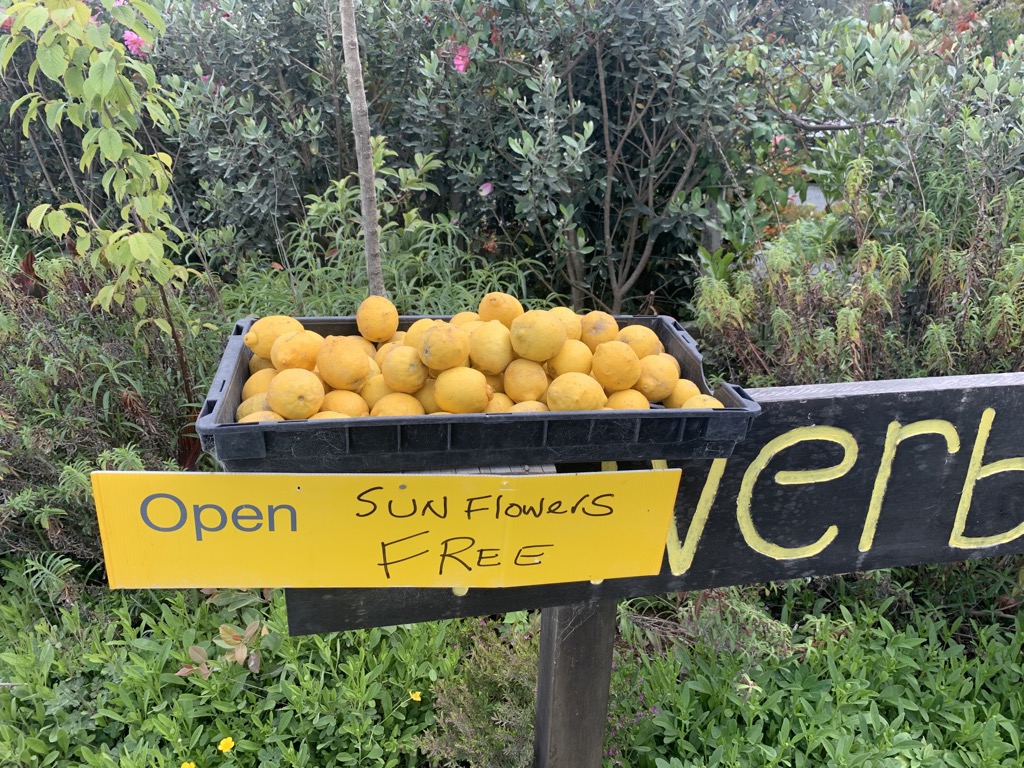 Open
SUN Flowers
FREE
verb